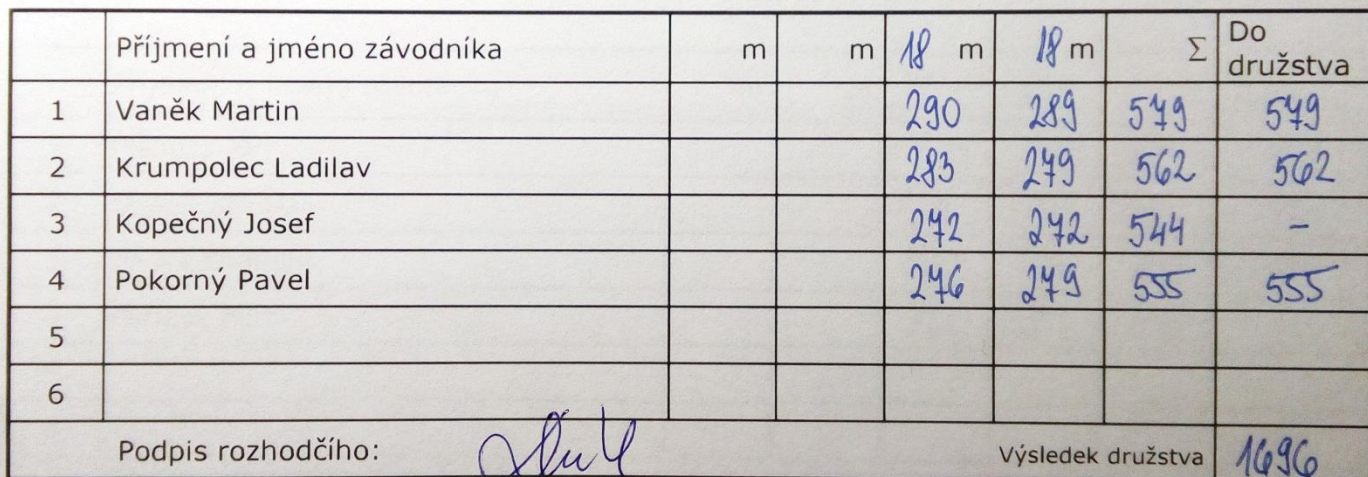 Příjmení a jméno závodníka m m 18 m 18 m Σ Do družstva
1 Vaněk Martin 290 289 579 579
2 Krumpolec Ladilav 283 279 562 562
3 Kopečný Josef 272 272 544 -
4 Pokorný Pavel 276 279 555 555
5
6
Podpis rozhodčího: Výsledek družstva 1696